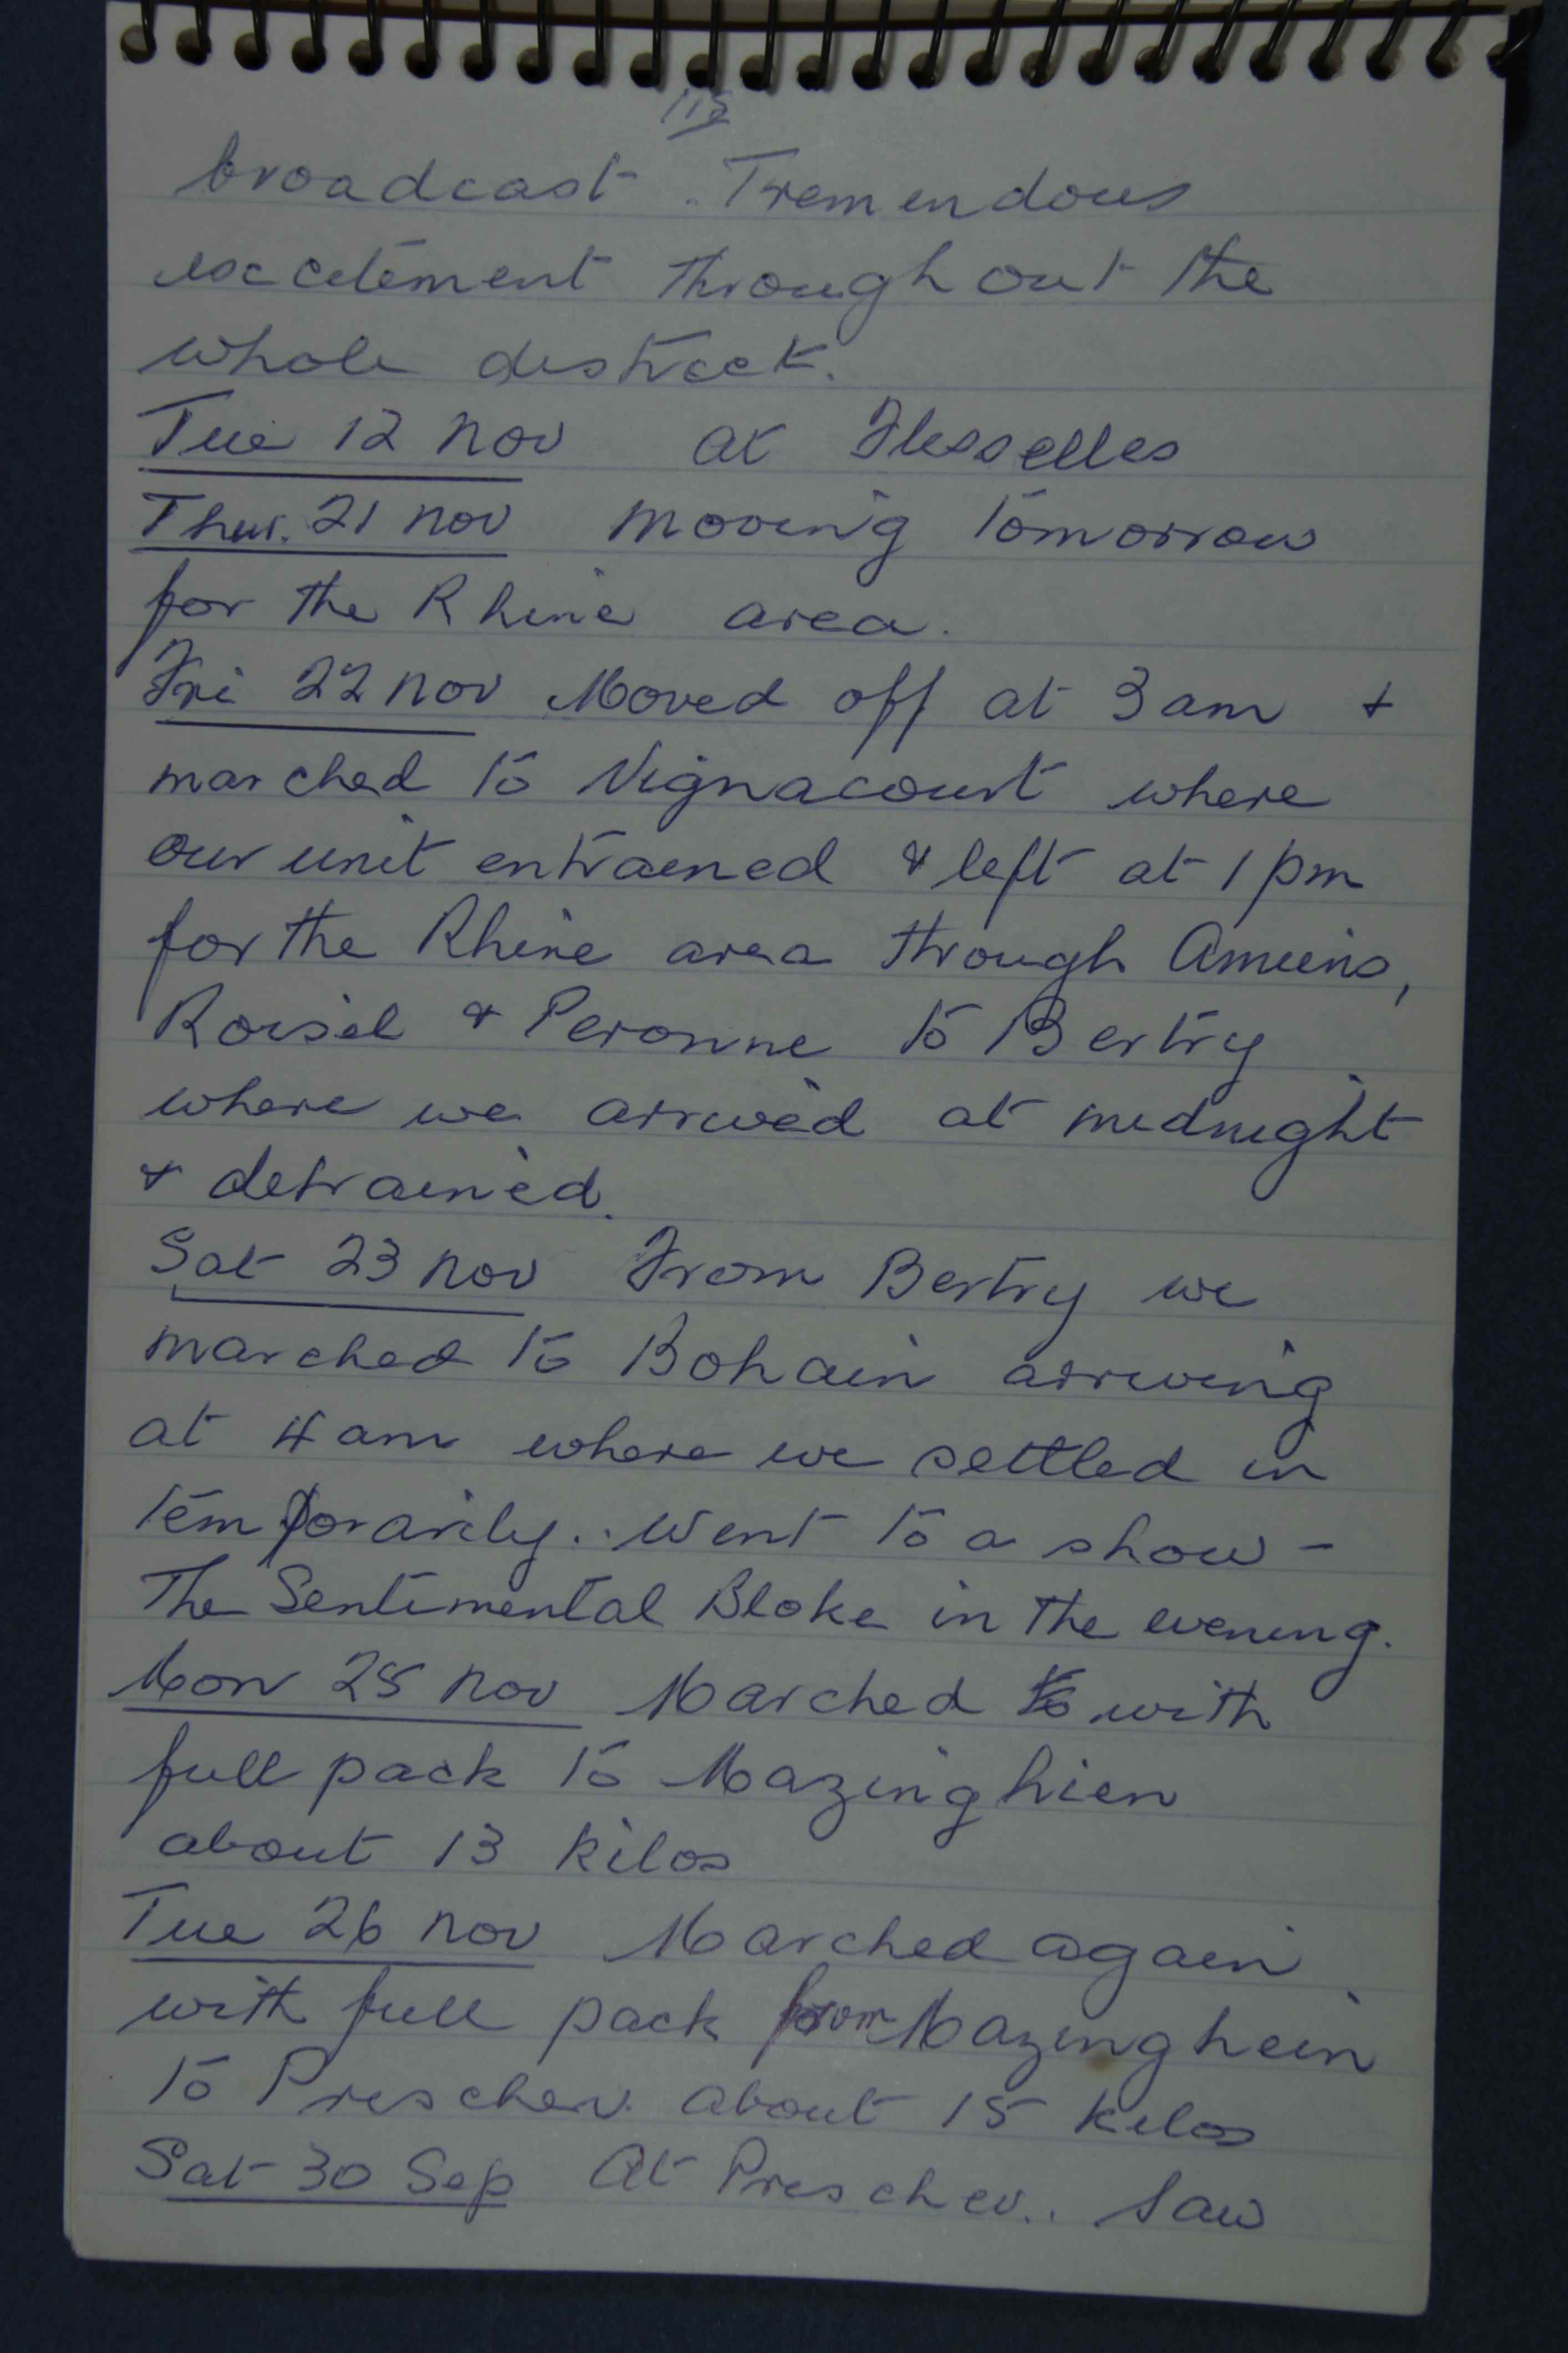 115
broadcast. Tremendous
excitement throughout the
whole district.
Tue 12 Nov at Flesselles
Thur. 21 Nov Moving tomorrow
for the Rhine area.
Fri 22 Nov Moved off at 3 am +
marched to Vignacourt where
our unit entrained & left at 1 pm
for the Rhine area through Amiens,
Roisel & Peronne to Bertry
where we arrived at midnight
& detrained.
Sat 23 Nov From Bertry we
marched to Bohain arriving
at 4 am where we settled in
temporarily.. Went to a show -
The Sentimental Bloke in the evening.
Mon 25 Nov Marched to with
full pack to Mazinghien
about 13 kilos
Tue 26 Nov Marched again
with full pack from Mazinghein
to Prescher. about 15 kilos
Sat 30 Sep At Prescher.. Saw